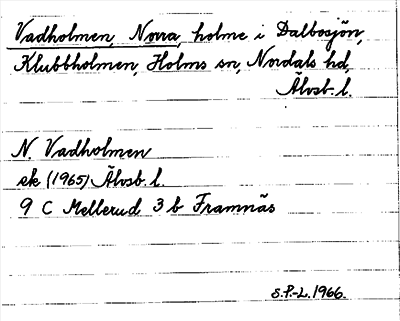 Vadholmen, Norra, holme i Dalbosjön,
Klubbholmen, Holms sn, Nordals hd,
Älvsb. l.
N. Vadholmen
ek (1965) Älvsb. l.
9 C Mellerud 3 b Framnäs
S.P.-L. 1966.